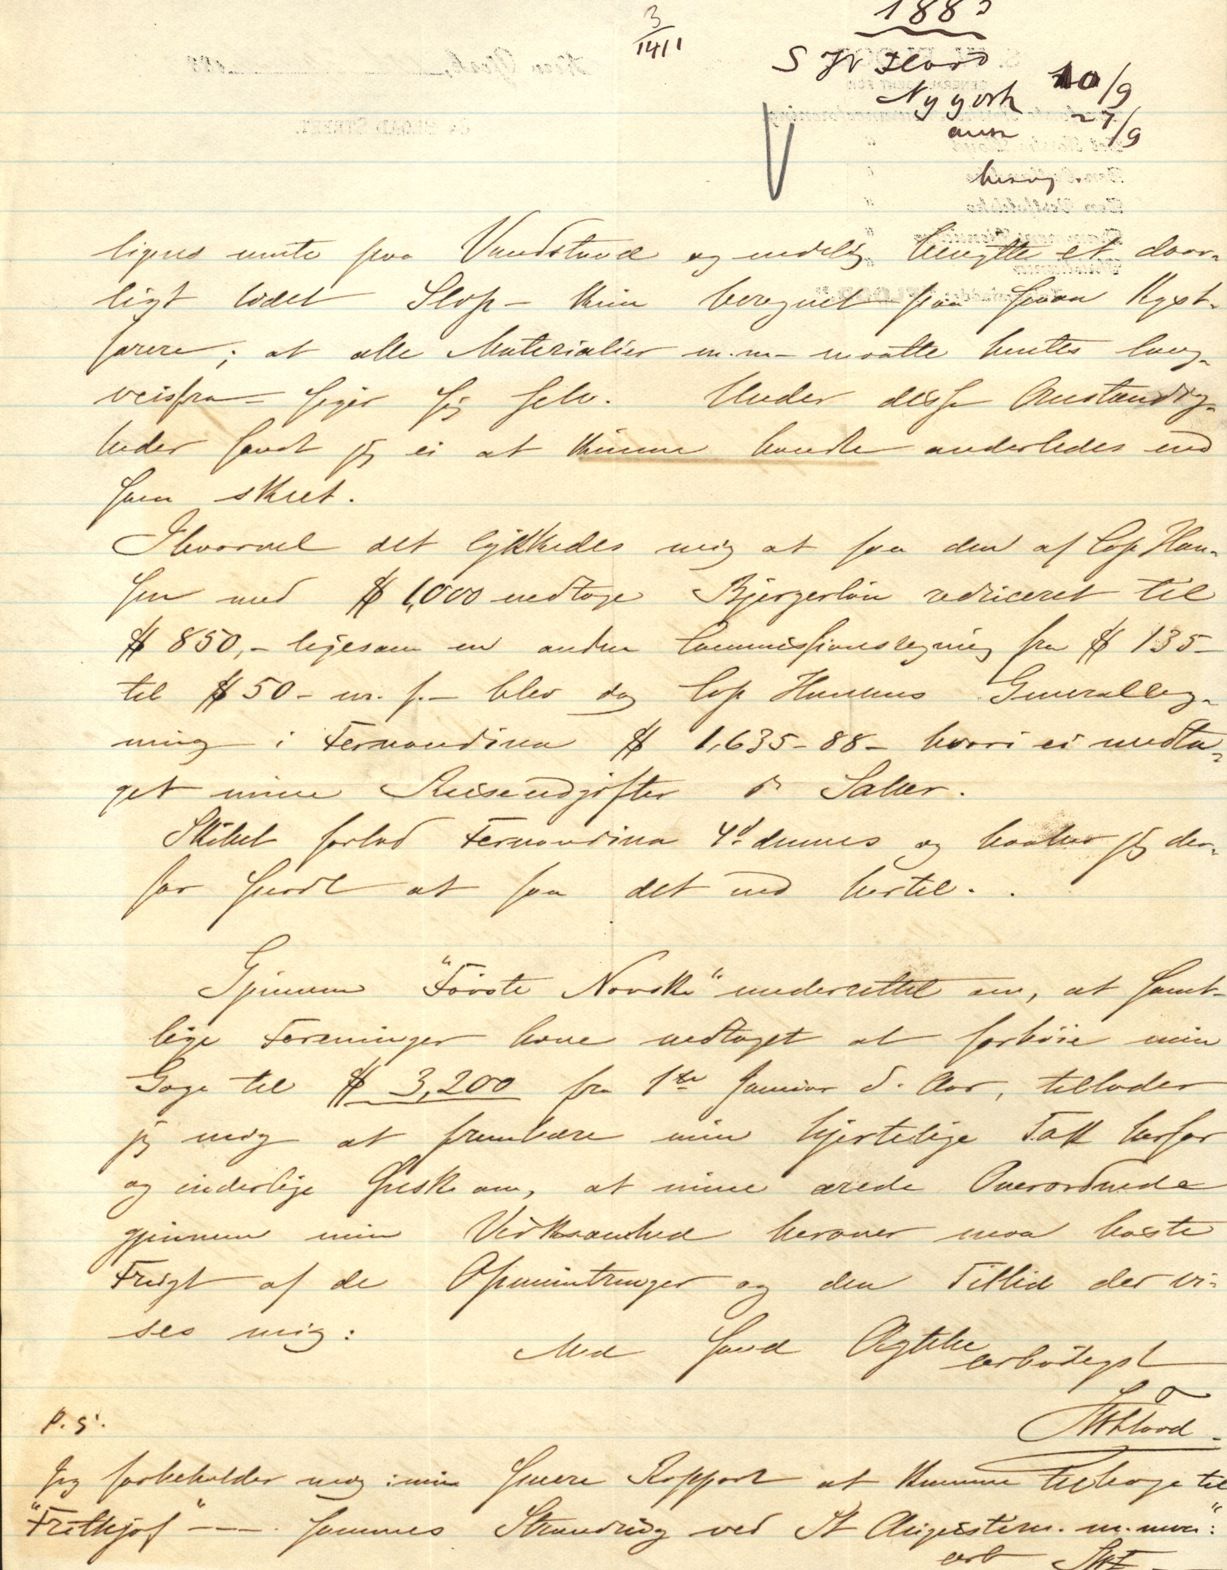 1883
3
14/1
S W Flood
10/9
Ny york
27/9
ligns vente paa Vandstand og endelig benytte et daar-
ligt ladet Slop - Kun beregnet paa smaa Kyst-
farere; at alle Materialier m.m. maatte hentes lang-
veisfra - siger sig selv. Under disse Omstændig-
heder fandt jeg ei at kunne handle anderledes end
som skeet.
Ihvorvel det lykkedes mig at faa den af Cap Han-
sen med $ 1,000 vedtagne Bjergerløn reduceret til
$ 850,- ligesom en anden Commissionsregning fra $ 135-
til $ 50 - m. f. - blev dog Cap Hansens Generalreg-
ning i Fernandina $ 1,635-88- hvori ei medta-
get mine Reiseudgifter & Salær.
Skibet forlod Fernandina 4d. dennes og haaber jeg der-
for snart at faa det ned hertil.
Gjennem "Første Norske" underrettet om, at samt-
lige Foreninger have vedtaget at forhøie min
Gage til $ 3,200 fra 1ste Januar d. Aar, tillader
jeg mig at frembære min hjertelige Tak herfor
og inderlige Ønske om, at mine ærede Overordnede
gjennem min Virksomhed herover maa høste
Frugt af de Opmuntringer og den Tillid der vi-
ses mig:
Med sand Agtelse
ærbødigst
SWFlood
P.S.
Jeg forbeholder mig i min senere Rapport at komme tilbage til
"Frithjof" --- sammes Stranding ved St Augustin m. m.
ærb SWF